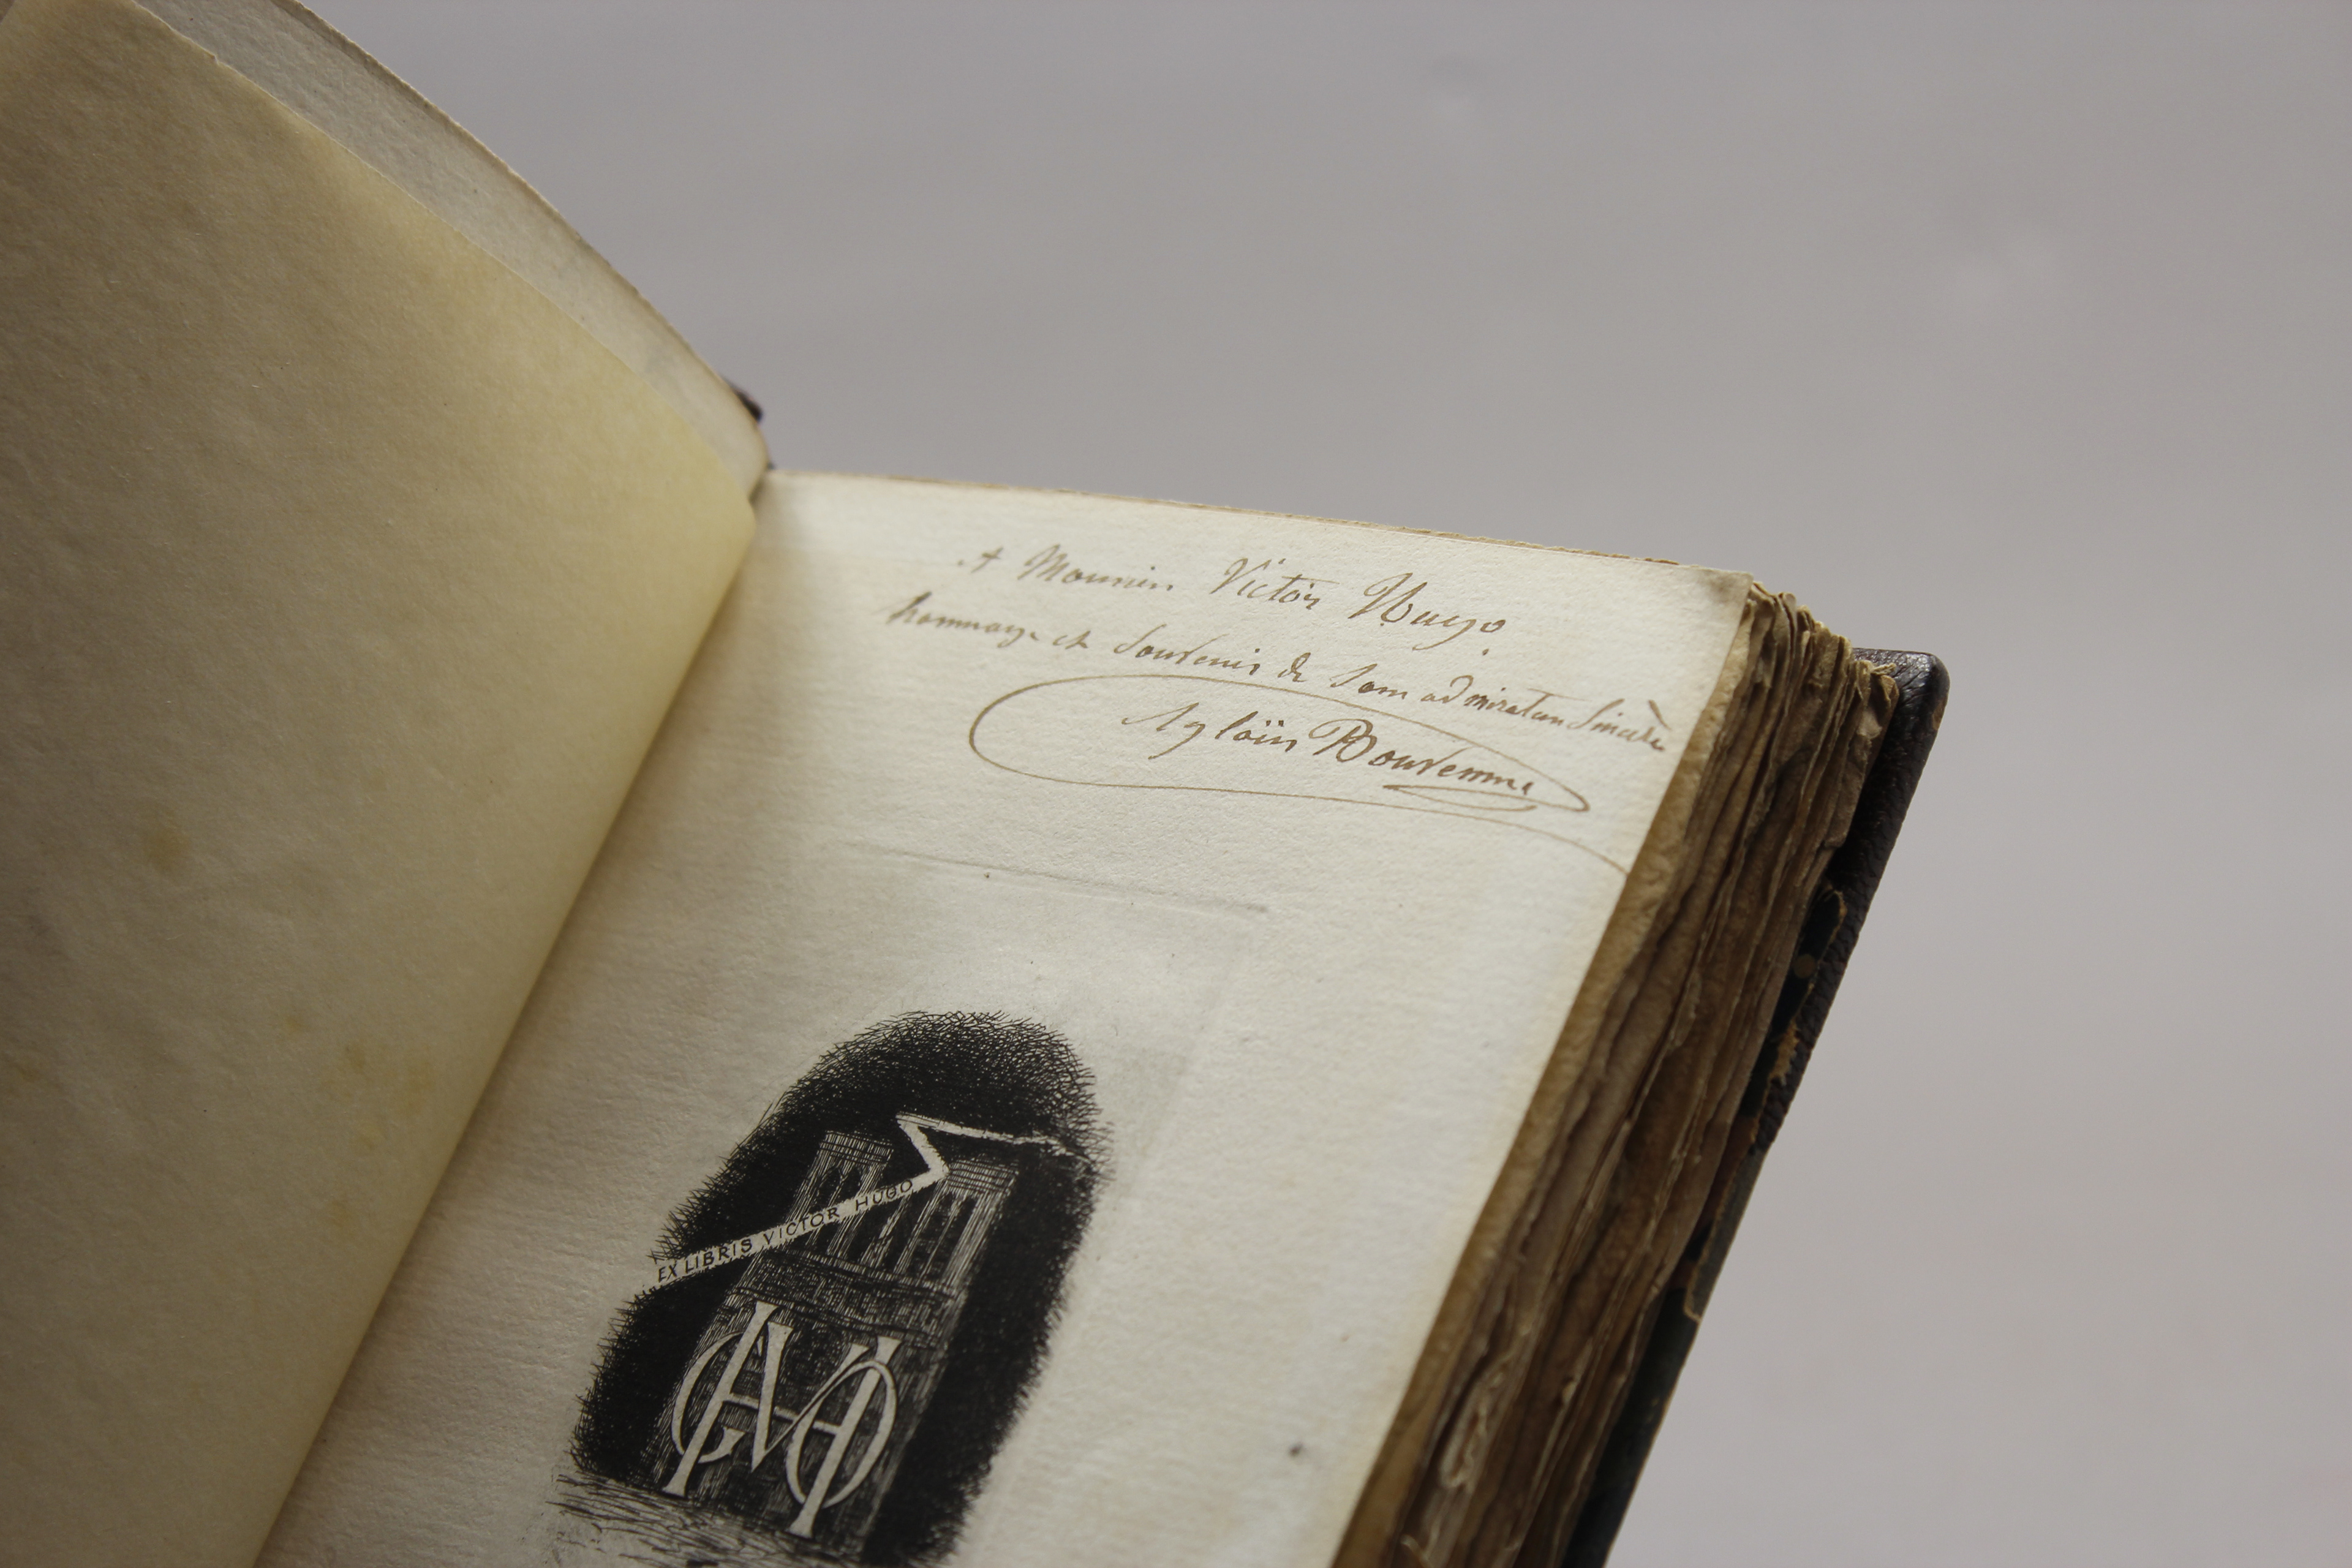 A Monsieur Victor Hugo.
hommage et Souvenir de Son admirateur Sincère
Aglaüs Bouvenne
EX LIBRIS VICTOR HUGO